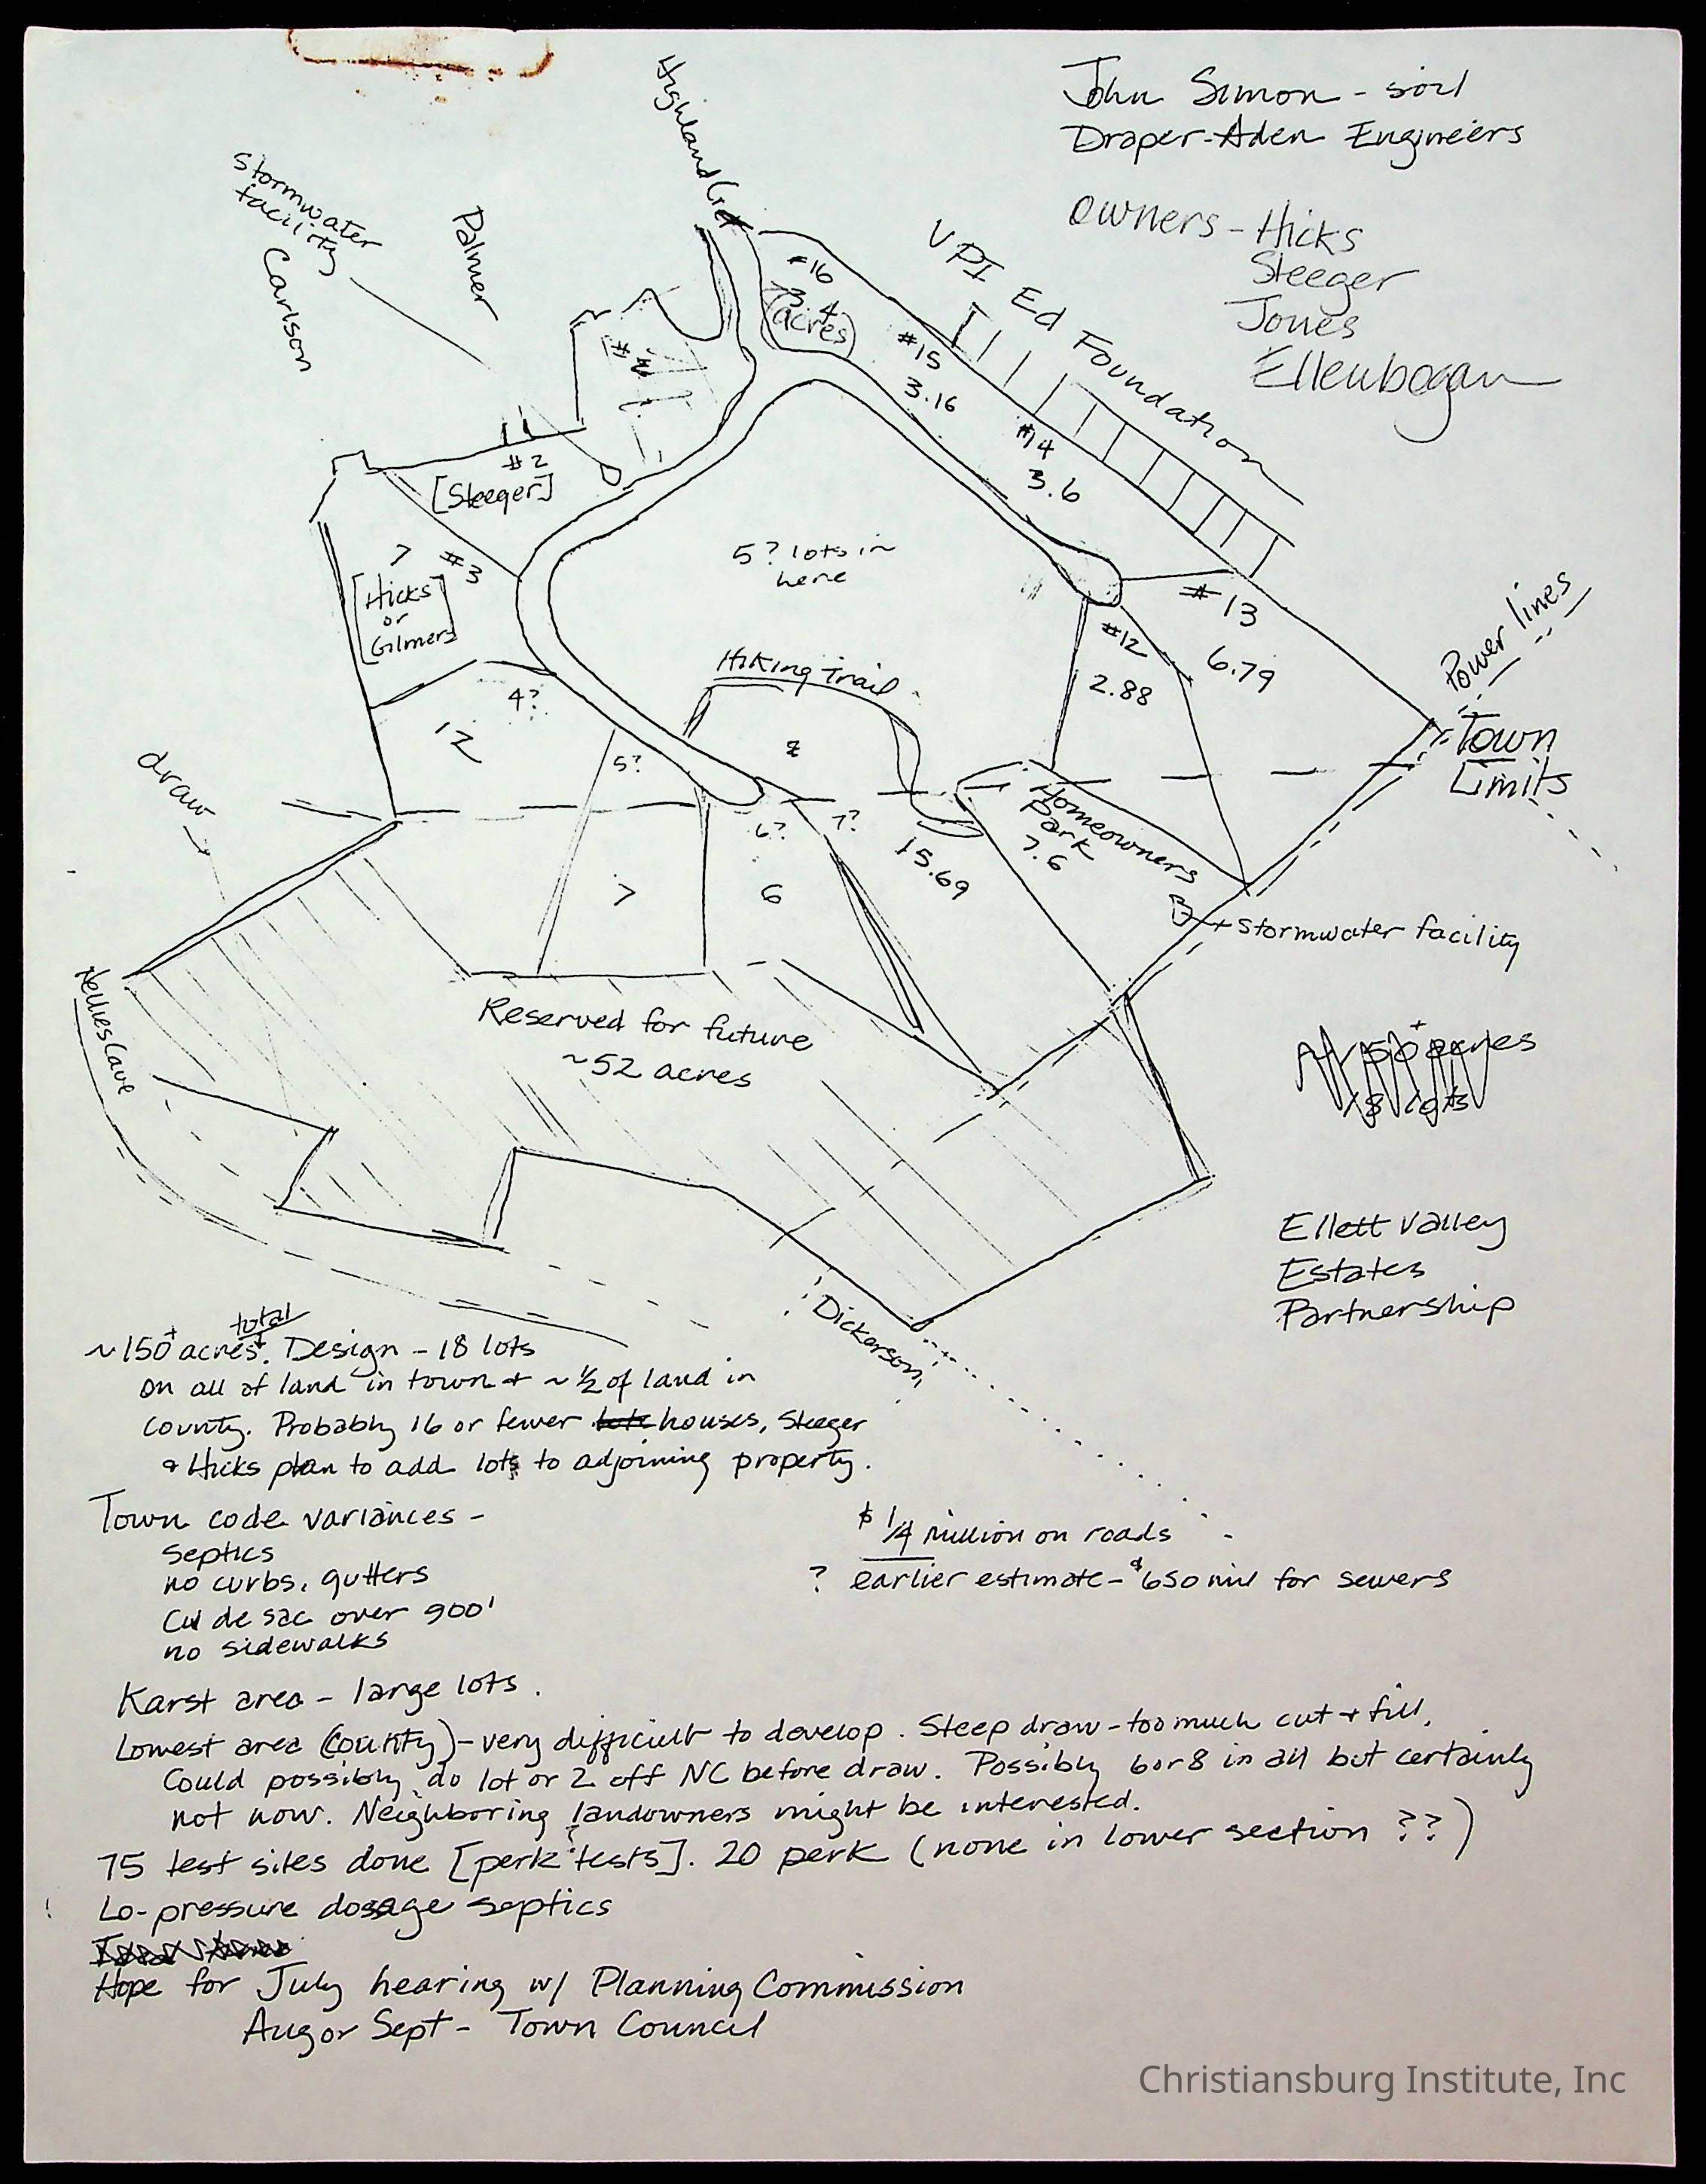 John Simon - soil
Draper-Aden Engineers
Owners - Hicks
Steeger
Jones
Ellenbogan
Highland Circ
Stormwater
facility
Carlson
Palmer
VPI Ed Foundation
#16
3.4
(acres)
#15
3.16
#14
3.6
#2
[Steeger]
7 #3
[Hicks
or
Gilmers]
5? lots in
here
#13
6.79
#12
2.88
Power lines
Town
Limits
Hiking Trail
4?
12
5?
8
draw
6?
7?
7
6
15.69
Homeowners
Park
7.6
stormwater facility
Nellies Cave
Reserved for future
~52 acres
Ellett Valley
Estates
Partnership
Dickerson
total
~150+ acres±. Design - 18 lots
on all of land in town + ~ 1/2 of land in
county. Probably 16 or fewer houses, Steeger
& Hicks plan to add lots to adjoining property.
Town code variances -
septics
no curbs, gutters
Cul de sac over 900'
no sidewalks
$ 1/4 million on roads
? earlier estimate - $650 mil for sewers
Karst area - large lots.
Lowest area (county) - very difficult to develop. Steep draw - too much cut + fill.
Could possibly do lot or 2 off NC before draw. Possibly 6 or 8 in all but certainly
not now. Neighboring landowners might be interested.
75 test sites done [perk tests]. 20 perk (none in lower section ??)
Lo-pressure dosage septics
Hope for July hearing w/ Planning Commission
Aug or Sept - Town Council
Christiansburg Institute, Inc